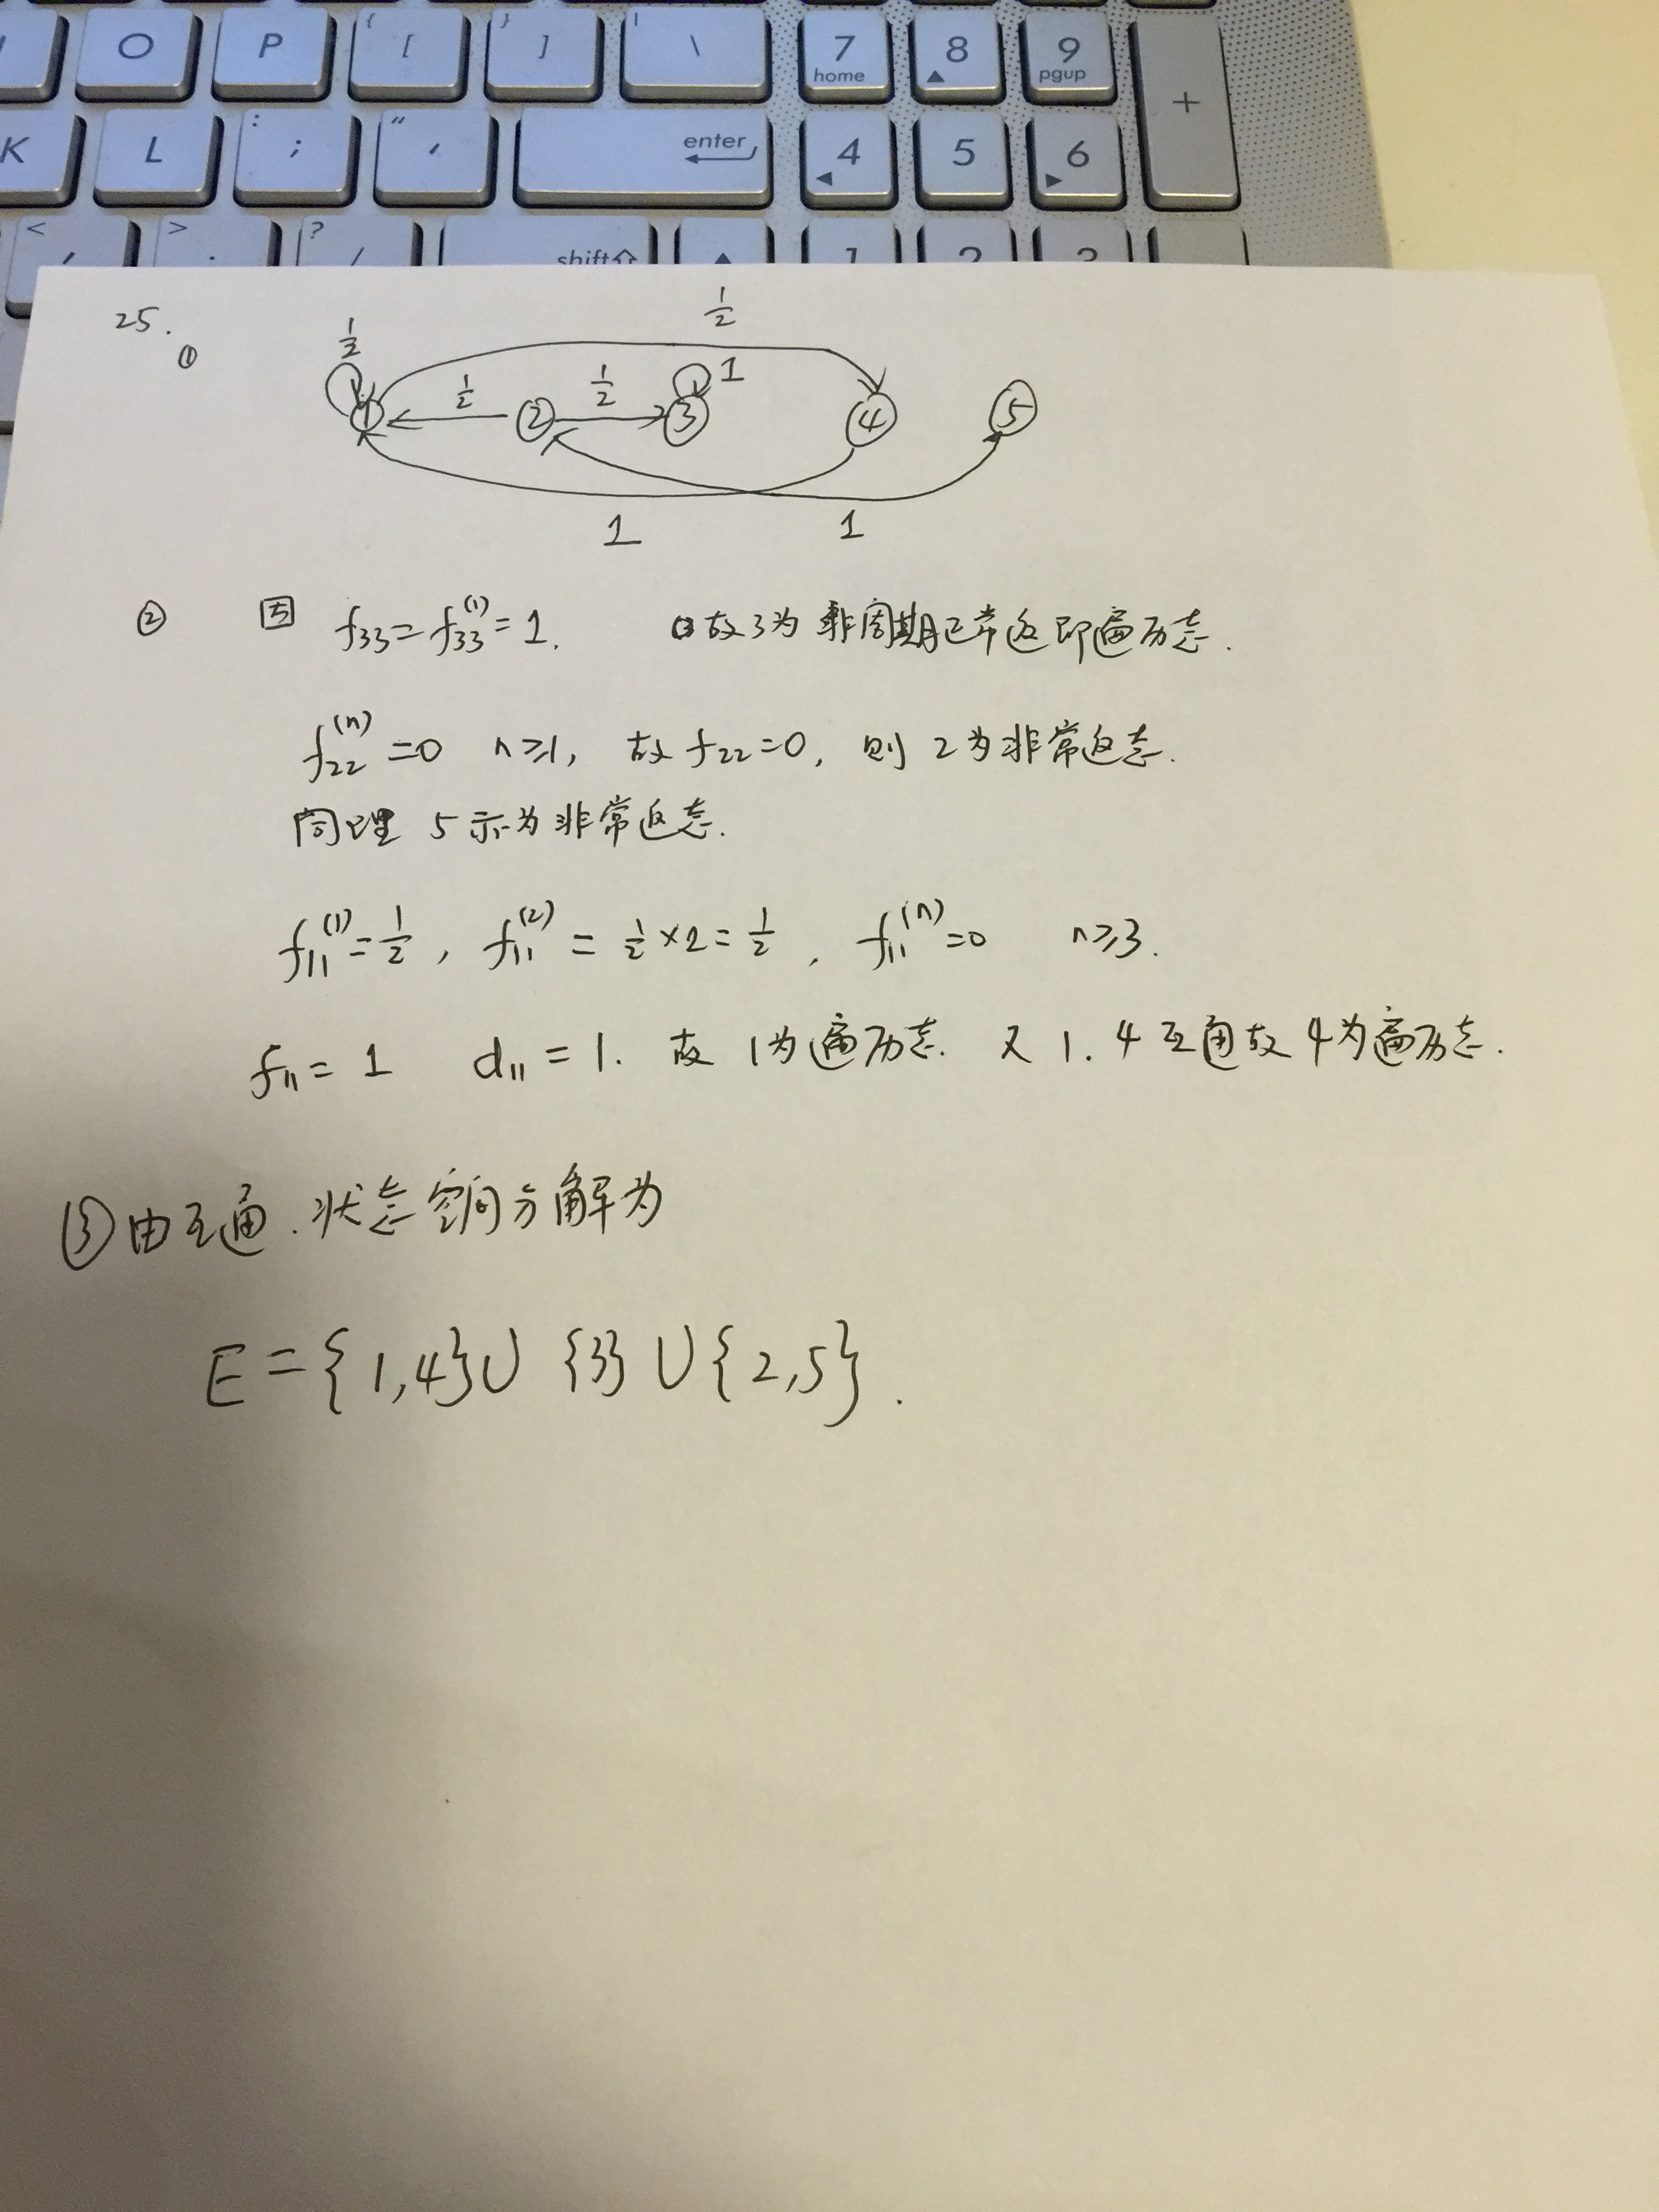 O P { [ } ] | \ 7 home 8 9 pgup +
K L : ; " ' enter 4 5 6
< , > . ? / shift 1 2 3
25.
①
1/2 1/2
1/2 1/2 1
1 2 3 4 5
1 1
② 因 f33=f33^(1)=1. 故3为非周期正常返即遍历态.
f22^(n)=0 n≥1, 故f22=0, 则2为非常返态.
同理 5亦为非常返态.
f11^(1)=1/2, f11^(2)=1/2×2=1/2, f11^(n)=0 n≥3.
f11=1 d11=1. 故1为遍历态. 又1.4互通故4为遍历态.
③由互通.状态空间分解为
E={1,4}∪{3}∪{2,5}.